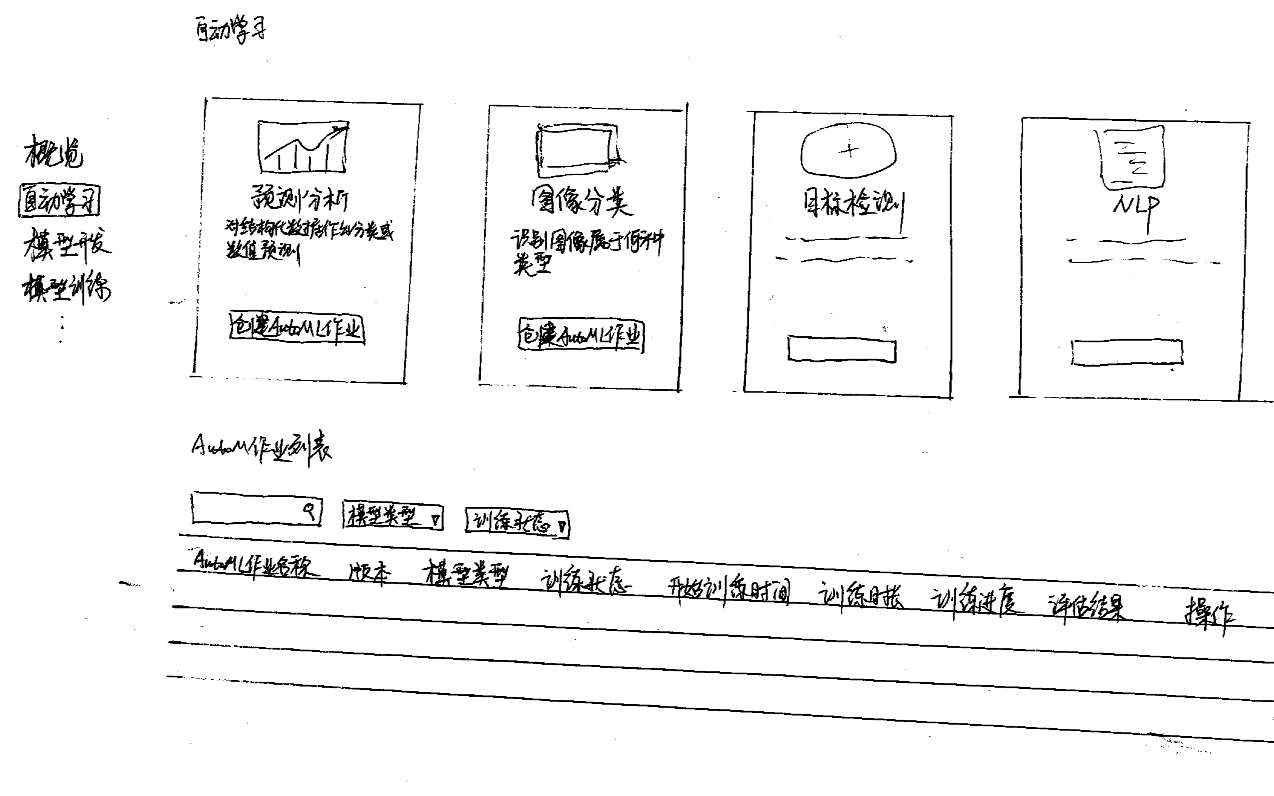 自动学习
概览
自动学习
模型开发
模型训练
预测分析
对结构化数据作出分类或
数值预测
创建AutoML作业
图像分类
识别图像属于何种
类型
创建AutoML作业
目标检测
NLP
AutoM作业列表
模型类型
训练状态
AutoML作业名称 版本 模型类型 训练状态 开始训练时间 训练时长 训练进度 评估结果 操作